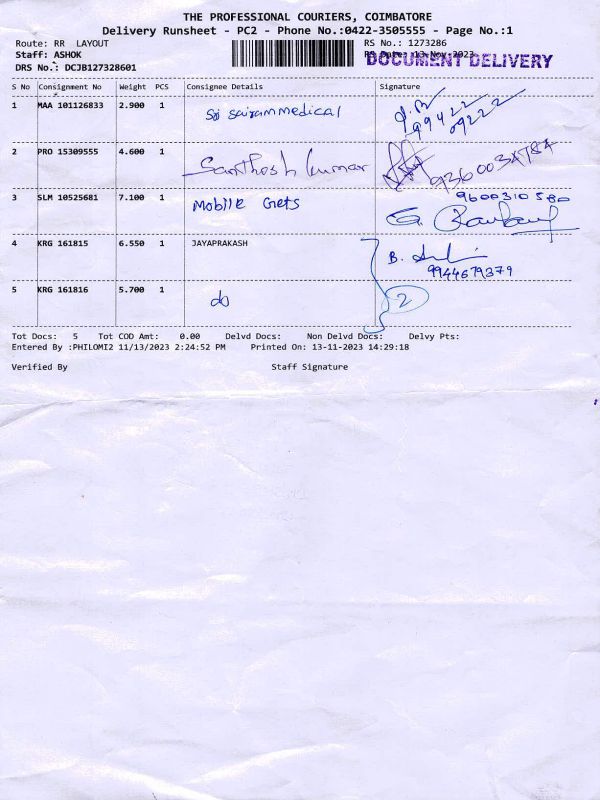 THE PROFESSIONAL COURIERS, COIMBATORE
Delivery Runsheet - PC2 - Phone No.:0422-3505555 - Page No.:1
Route: RR LAYOUT
RS No.: 1273286
Staff: ASHOK
RS Date: 13 Nov 2023
DOCUMENT DELIVERY
DRS No.: DCJB127328601
S No Consignment No Weight PCS Consignee Details Signature
1 MAA 101126833 2.900 1 Sri Sairam medical
99422 09222
2 PRO 15309555 4.600 1 Santhosh kumar
3 SLM 10525681 7.100 1 Mobile Gets 9600310580
4 KRG 161815 6.550 1 JAYAPRAKASH B.
9944679379
5 KRG 161816 5.700 1 do 2
Tot Docs: 5 Tot COD Amt: 0.00 Delvd Docs: Non Delvd Docs: Delvy Pts:
Entered By :PHILOMI2 11/13/2023 2:24:52 PM Printed On: 13-11-2023 14:29:18
Verified By Staff Signature